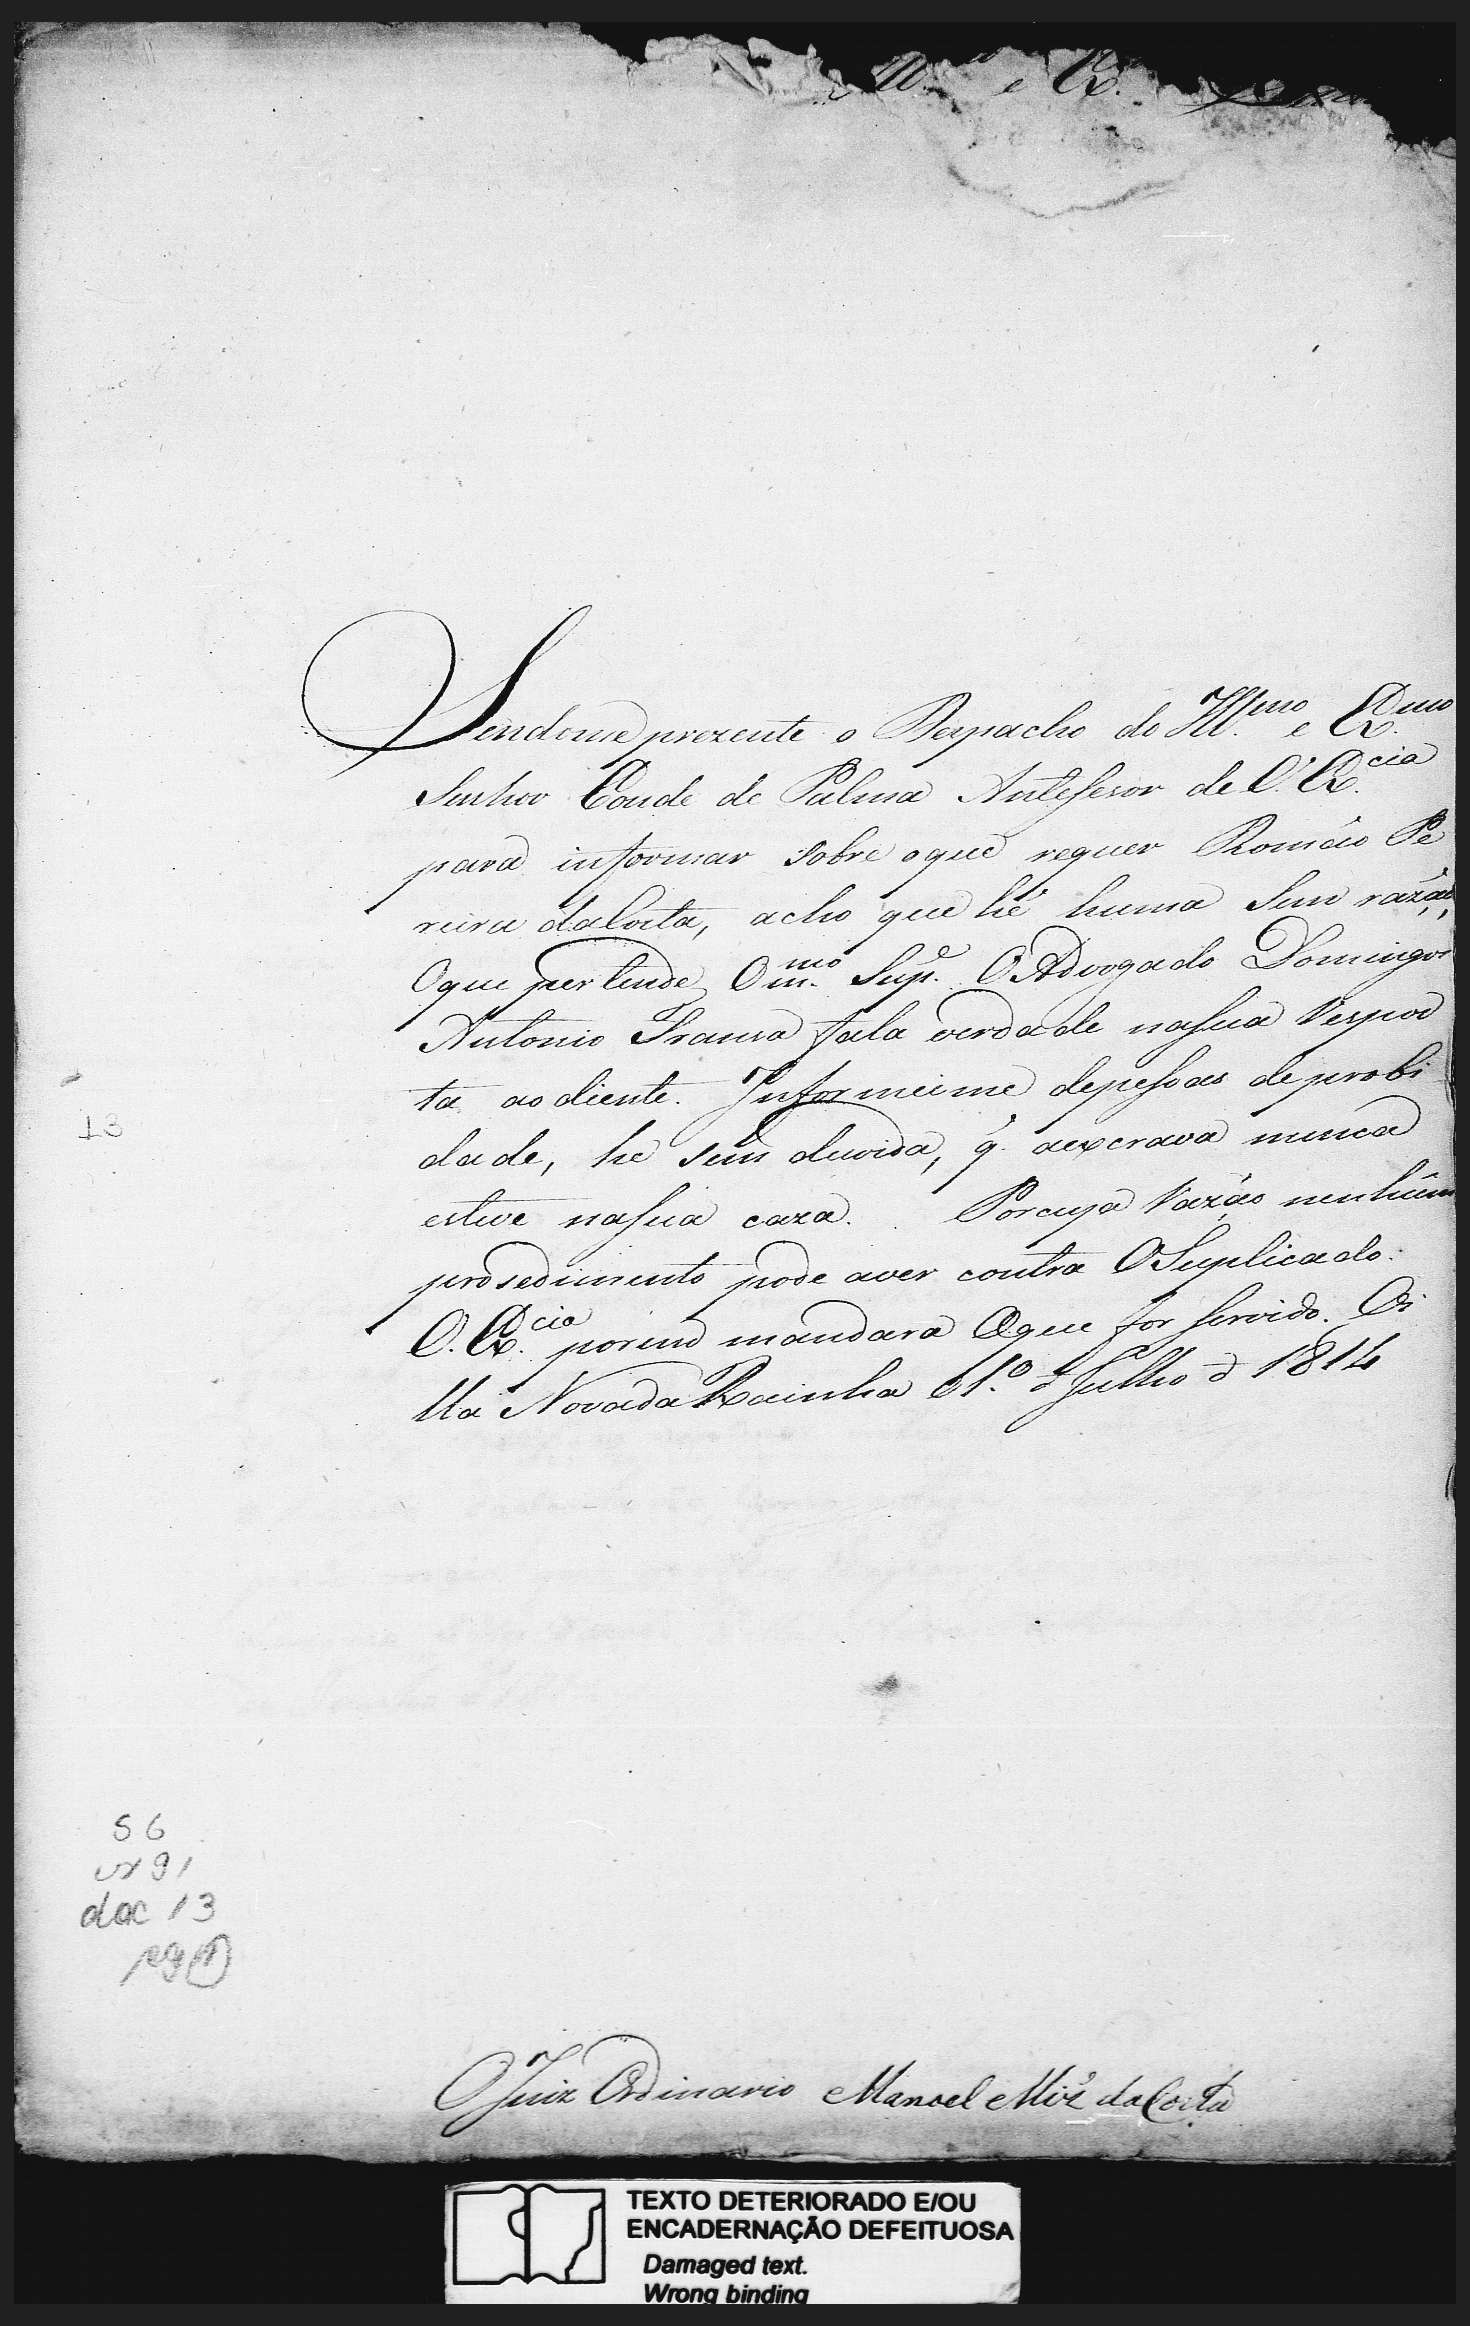 Ill. e Ex.
Sendome prezente o Despacho do Ill.mo e Ex.mo
Senhor Conde de Palma Antesesor de V. Ex.cia
para informar sobre oque requer Romão Pe
reira daCosta, acho que hé huma sem razão,
Oque pertende O m.mo Sup.e O Advogado Domingos
Antonio Fransa fala verdade nasua respos
ta ao diente. Informeime depesoas de probi
dade, he sem duvida, q. aexcrava nunca
esteve nasua caza. Porcuja razão nenhũm
prosedimento pode aver contra OSuplicado.
V. Ex.cia porem mandara Oque for servido. Vi
lla Novada Rainha 1.º d Julho d 1814
O Juiz Ordinario Manoel Miz da Costa
13
S G
cx 91
doc 13
pg 1
TEXTO DETERIORADO E/OU
ENCADERNAÇÃO DEFEITUOSA
Damaged text.
Wrong binding